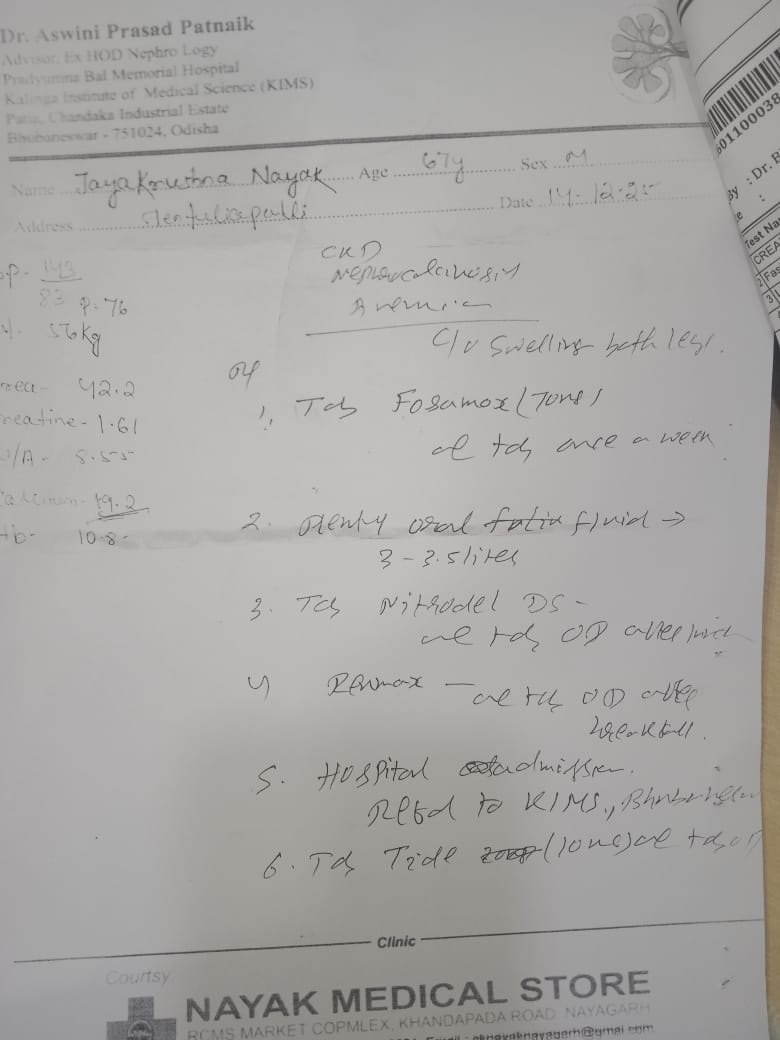 Dr. Aswini Prasad Patnaik
Advisor, Ex HOD Nephro Logy
Pradyumna Bal Memorial Hospital
Kalinga Institute of Medical Science (KIMS)
Patia, Chandaka Industrial Estate
Bhubaneswar - 751024, Odisha
Name Jayakrushna Nayak Age 67y Sex M
Address Tentuliapalli Date 14-12-25
143
83 P-76
56 kg
42.2
1.61
8.55
19.2
10.8
CKD
Nephrocalcinosis
Anemia
C/o Swelling both legs.
1. Tab Fosamox (70mg)
tab once a week
2. Plenty oral fluid →
3 - 3.5 litres
3. Tab Nitrodel DS -
tab OD after lunch
4) Renmax - tab OD after
breakfast.
5. Hospital admission.
Refd to KIMS,
6. Tab Tide (10mg) tab OD
Clinic
Courtsy
NAYAK MEDICAL STORE
RCMS MARKET COPMLEX, KHANDAPADA ROAD, NAYAGARH
601100038
: Dr. B
Test Na
CREA